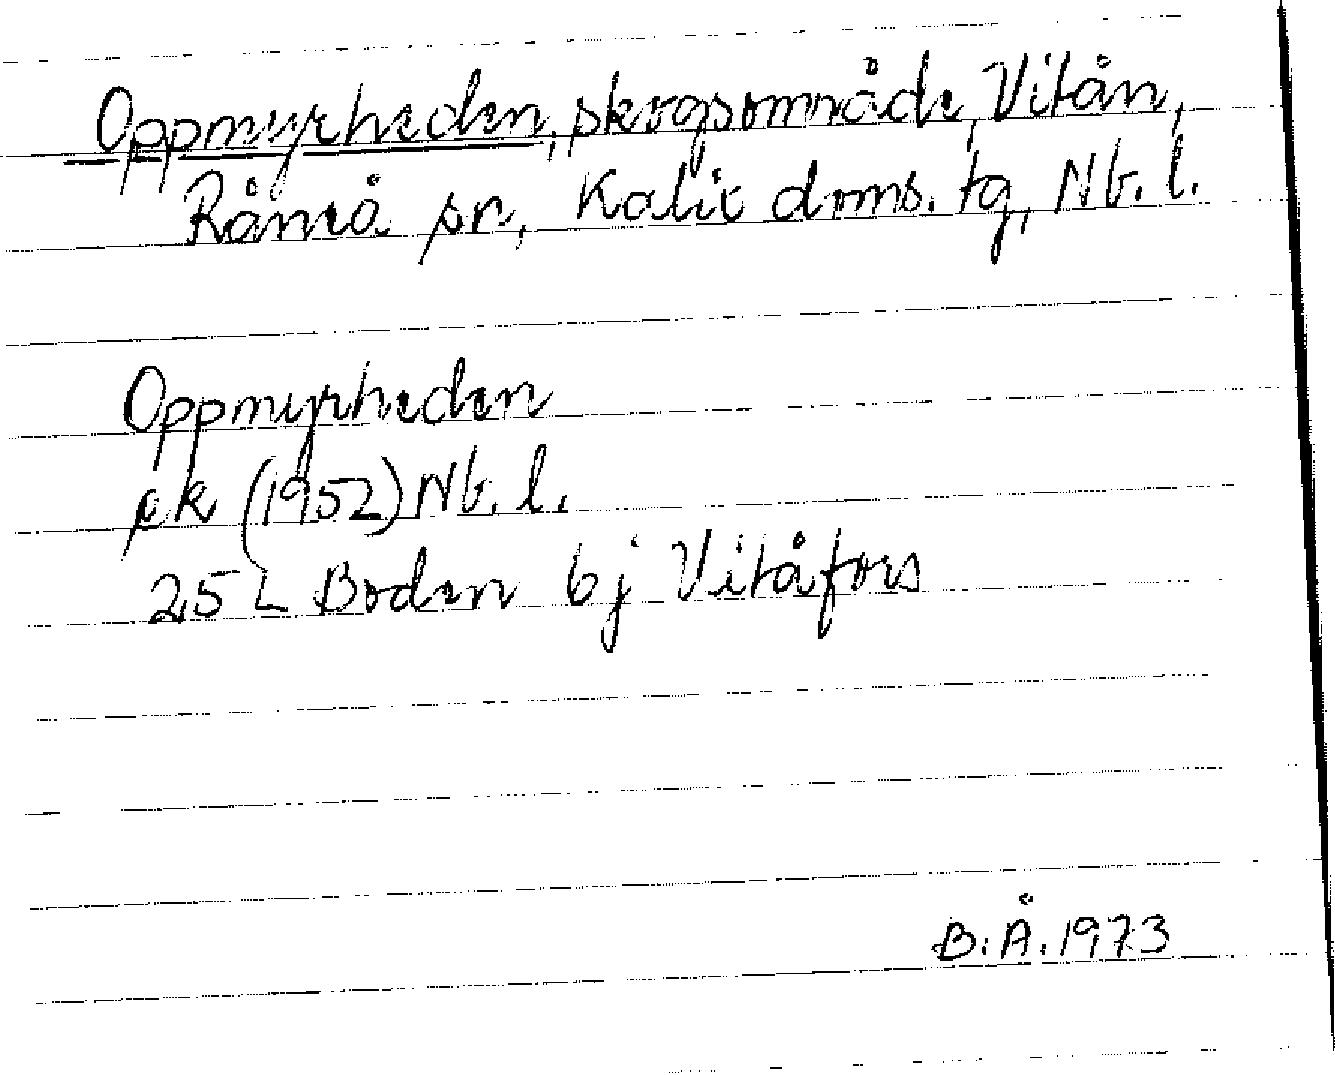 Oppmyrheden, skogsområde, Vitån,
Råneå sn, Kalix doms. tg, Nb. l.
Oppmyrheden
ek (1952) Nb. l.
25 L Boden 6j Vitåfors
B.Å. 1973